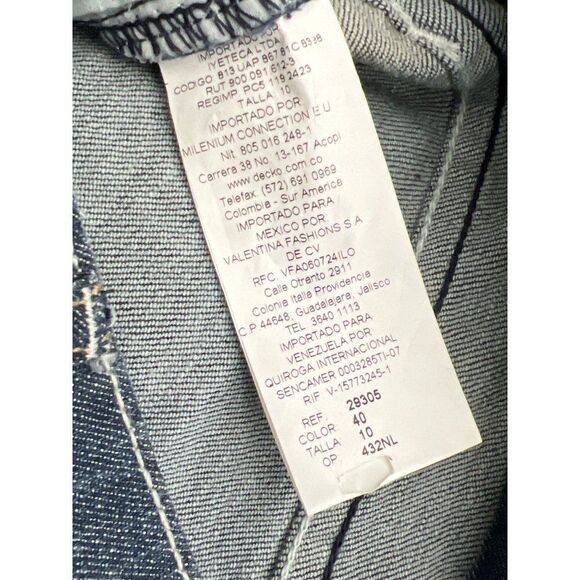 IMPORTADO POR
IYETECA LTDA
CODIGO: 813 UAP 867 81C 8338
RUT 900 091 612-3
REGIMP: PC5 119 2423
TALLA: 10
IMPORTADO POR
MILENIUM CONNECTION E U
Nit. 805 016 248-1
Carrera 38 No. 13-167 Acopi
www.decko.com.co
Telefax. (572) 691 0969
Colombia - Sur America
IMPORTADO PARA
MEXICO POR:
VALENTINA FASHIONS S.A
DE CV
RFC. VFA060724ILO
Calle Otranto 2911
Colonia Italia Providencia
C.P 44648, Guadalajara, Jalisco
TEL 3640 1113
IMPORTADO PARA
VENEZUELA POR
QUIROGA INTERNACIONAL
SENCAMER 0003285TI-07
RIF V-15773245-1
REF. 29305
COLOR 40
TALLA 10
OP 432NL